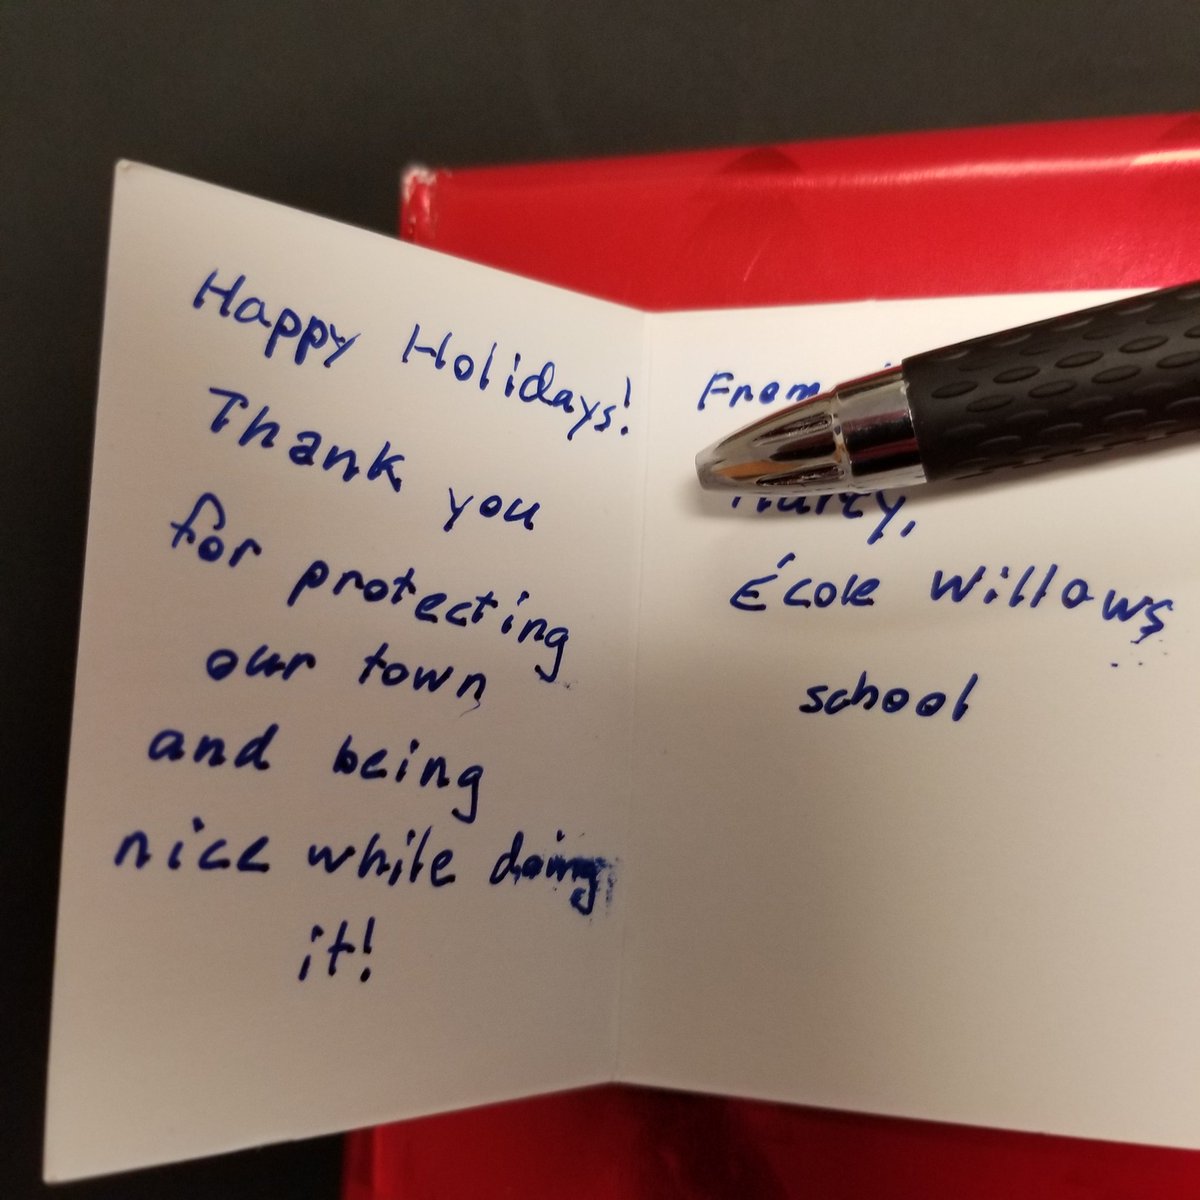 Happy Holidays!
Thank you
for protecting
our town
and being
nice while doing
it!
From
École Willows
school